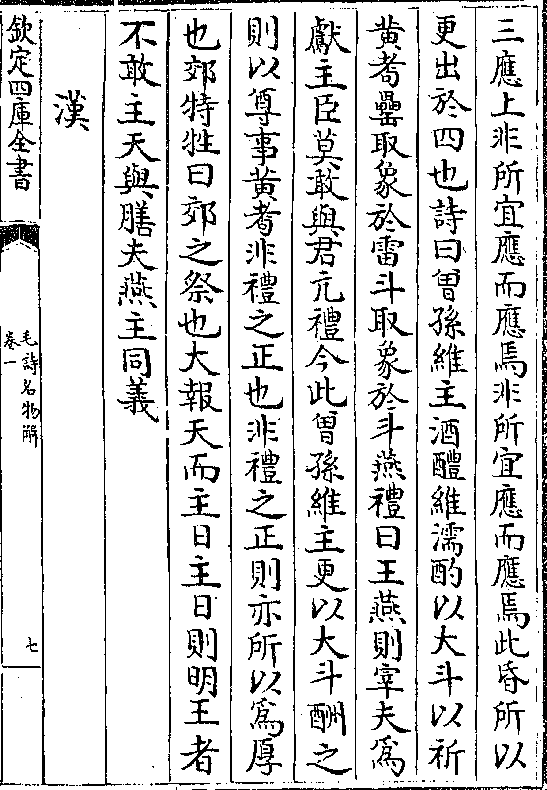 三應上非所宜應而應焉非所宜應而應焉此昏所以
更出於四也詩曰曾孫維主酒醴維濡酌以大斗以祈
黃耇罍取象於雷斗取象於斗燕禮曰王燕則宰夫爲
獻主臣莫敢與君亢禮今此曾孫維主更以大斗酬之
則以尊事黃耇非禮之正也非禮之正則亦所以爲厚
也郊特牲曰郊之祭也大報天而主日主日則明王者
不敢主天與膳夫燕主同義
漢
欽定四庫全書
毛詩名物解
卷一
七